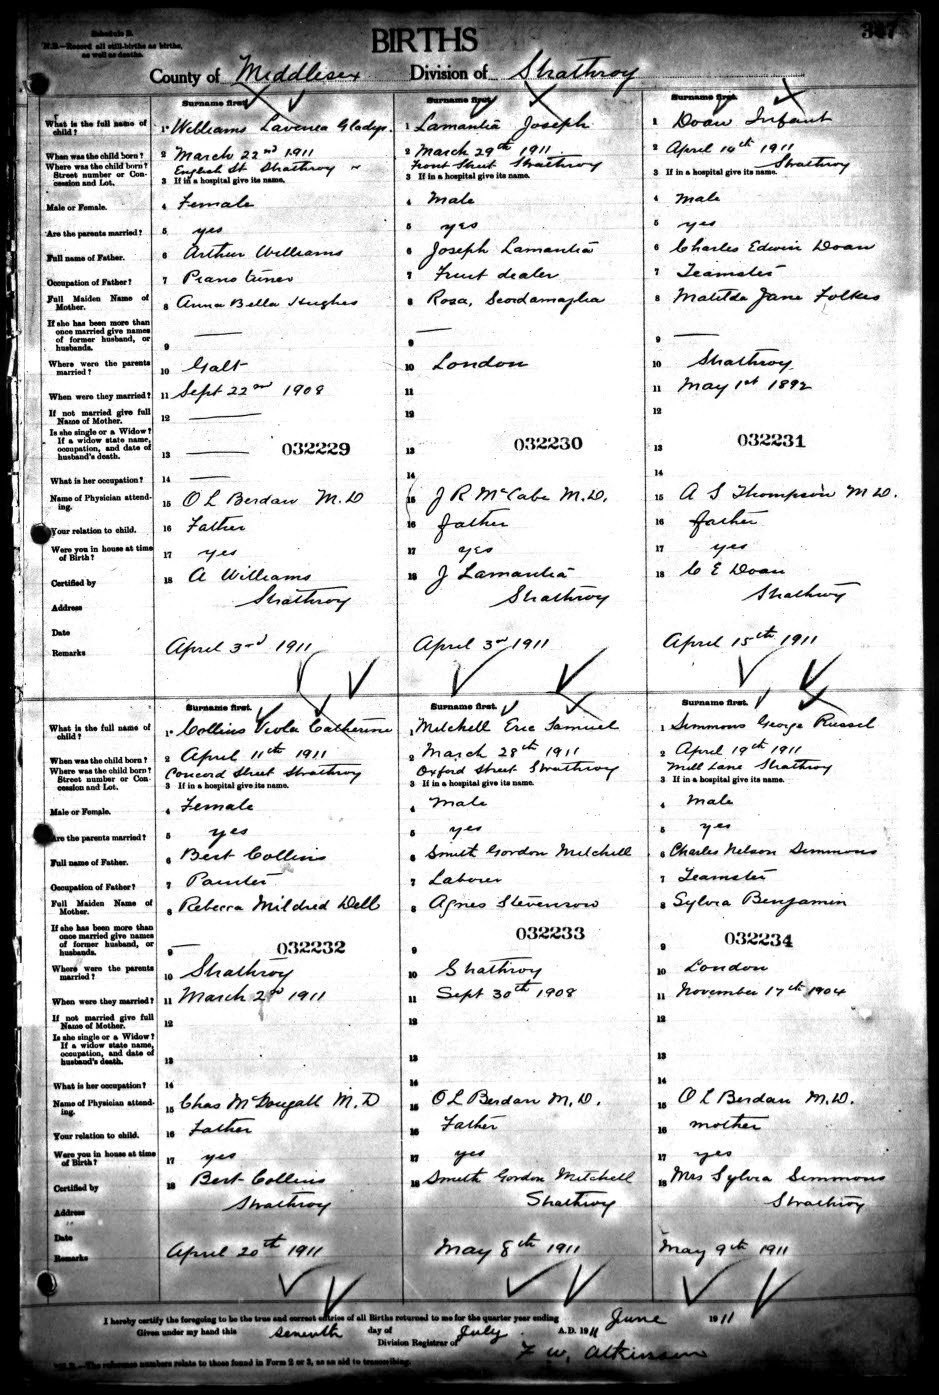 Schedule B.
N.B.—Record all still-births as births,
as well as deaths.
BIRTHS
347
County of Middlesex Division of Strathroy
Surname first. Surname first. Surname first.
What is the full name of child? 1 Williams Gladys. 1 Lamantia Joseph 1 Doan Infant
When was the child born? 2 March 22nd 1911 2 March 29th 1911 2 April 14th 1911
Where was the child born? Street number or Concession and Lot. English St Strathroy Front Street Strathroy Strathroy
3 If in a hospital give its name. 3 If in a hospital give its name. 3 If in a hospital give its name.
Male or Female. 4 Female 4 Male 4 Male
Are the parents married? 5 yes 5 yes 5 yes
Full name of Father. 6 Arthur Williams 6 Joseph Lamantia 6 Charles Edwin Doan
Occupation of Father? 7 Piano tuner 7 Fruit dealer 7 Teamster
Full Maiden Name of Mother. 8 Anna Bella Hughes 8 Rosa, Scordamaglia 8 Matilda Jane Folkes
If she has been more than once married give names of former husband, or husbands. 9 — 9 — 9 —
Where were the parents married? 10 Galt 10 London 10 Strathroy
When were they married? 11 Sept 22nd 1908 11 11 May 1st 1892
If not married give full Name of Mother. 12 — 12 12
Is she single or a Widow? If a widow state name, occupation, and date of husband's death. 13 — 032229 13 032230 13 032231
What is her occupation? 14 — 14 14
Name of Physician attending. 15 O L Berdan M.D 15 J R McCabe M.D. 15 A S Thompson M D.
Your relation to child. 16 Father 16 father 16 father
Were you in house at time of Birth? 17 yes 17 yes 17 yes
Certified by 18 A Williams 18 J Lamantia 18 C E Doan
Address Strathroy Strathroy Strathroy
Date
Remarks April 3rd 1911 April 3rd 1911 April 15th 1911
Surname first. Surname first. Surname first.
What is the full name of child? 1 Collins Viola Catherine 1 Mitchell Eric Samuel 1 Simmons George Russel
When was the child born? 2 April 11th 1911 2 March 28th 1911 2 April 19th 1911
Where was the child born? Street number or Concession and Lot. Concord Street Strathroy Oxford Street Strathroy Mill Lane Strathroy
3 If in a hospital give its name. 3 If in a hospital give its name. 3 If in a hospital give its name.
Male or Female. 4 Female 4 Male 4 Male
Are the parents married? 5 yes 5 yes 5 yes
Full name of Father. 6 Bert Collins 6 Smith Gordon Mitchell 6 Charles Nelson Simmons
Occupation of Father? 7 Painter 7 Laborer 7 Teamster
Full Maiden Name of Mother. 8 Rebecca Mildred Dell 8 Agnes Stevenson 8 Sylvia Benjamin
If she has been more than once married give names of former husband, or husbands. 9 — 032232 9 032233 9 032234
Where were the parents married? 10 Strathroy 10 Strathroy 10 London
When were they married? 11 March 2nd 1911 11 Sept 30th 1908 11 November 17th 1904
If not married give full Name of Mother. 12 12 12
Is she single or a Widow? If a widow state name, occupation, and date of husband's death. 13 13 13
What is her occupation? 14 14 14
Name of Physician attending. 15 Chas McDougall M.D 15 O L Berdan M.D. 15 O L Berdan M.D.
Your relation to child. 16 Father 16 Father 16 mother
Were you in house at time of Birth? 17 yes 17 yes 17 yes
Certified by 18 Bert Collins 18 Smith Gordon Mitchell 18 Mrs Sylvia Simmons
Address Strathroy Strathroy Strathroy
Date
Remarks April 20th 1911 May 8th 1911 May 9th 1911
I hereby certify the foregoing to be the true and correct entries of all Births returned to me for the quarter year ending June 1911
Given under my hand this seventh day of July A.D. 1911
Division Registrar of F. W. Atkinson
N.B.—The reference numbers relate to those found in Form 2 or 3, as an aid to transcribing.